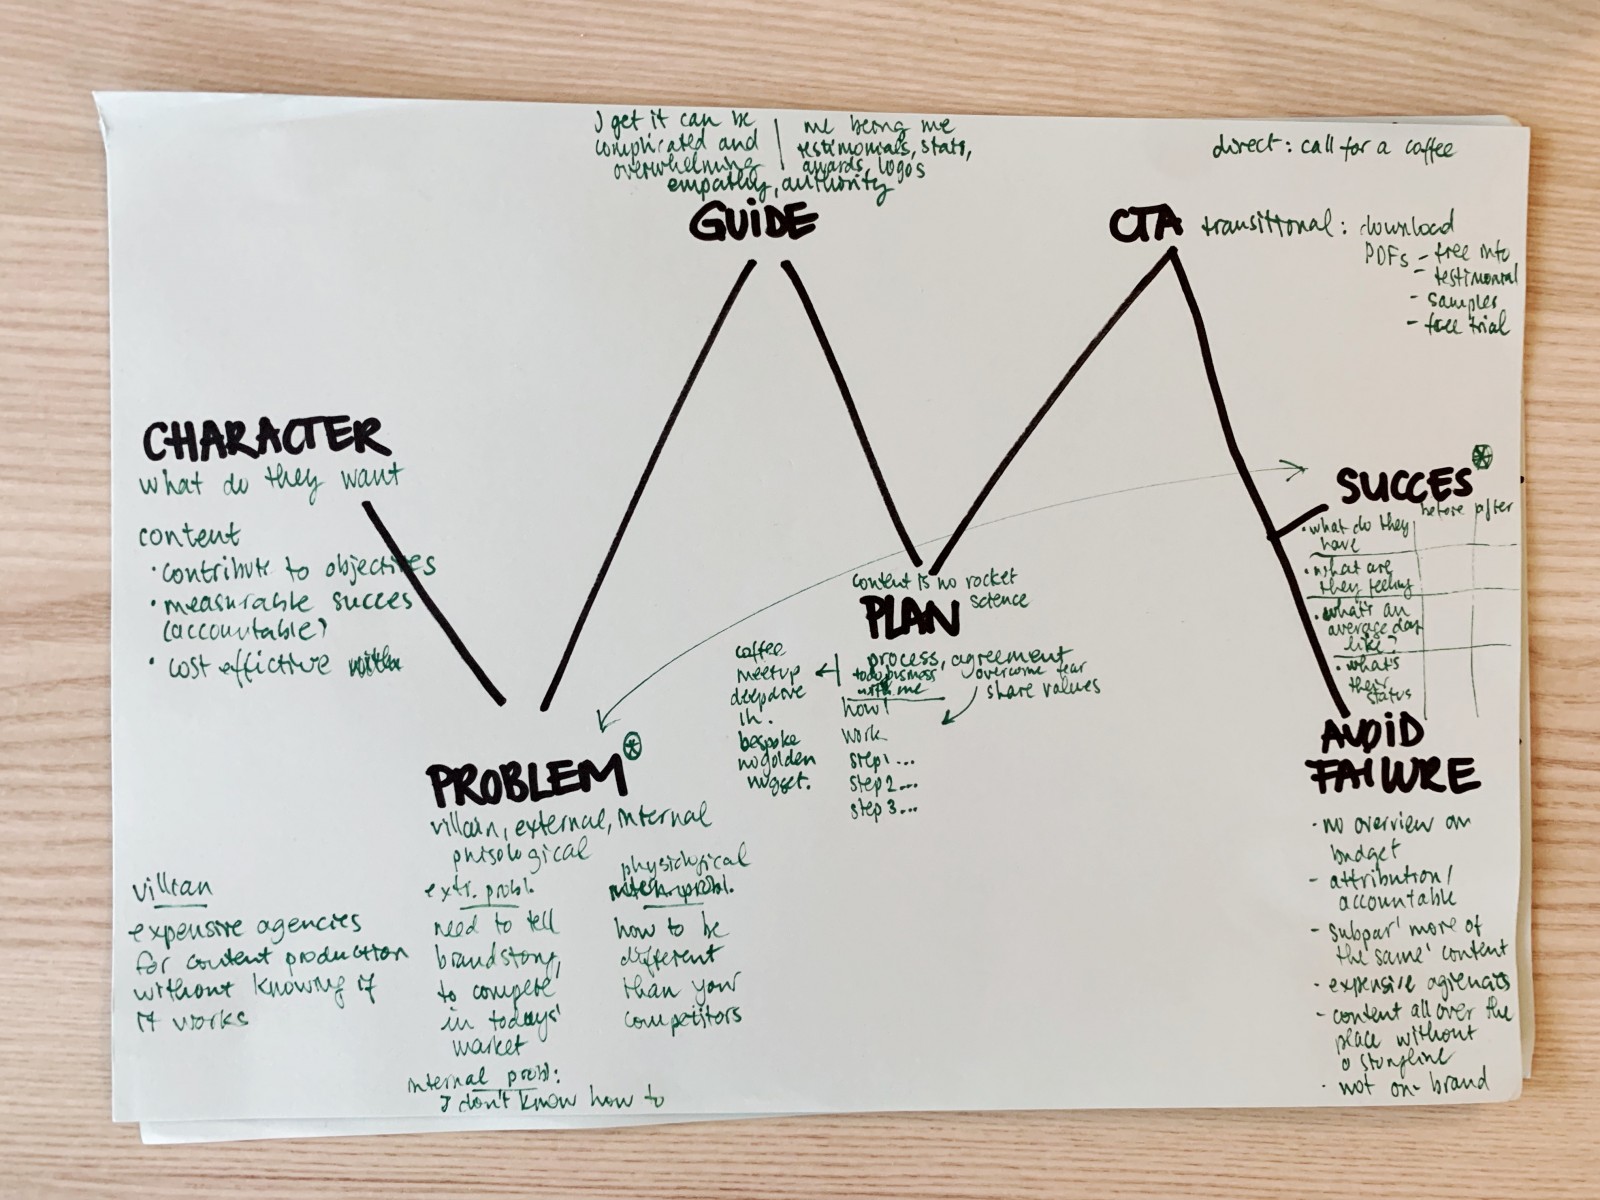 I get it can be
complicated and
overwhelming
me being me
testimonials, stats,
awards, logos
empathy, authority
GUIDE
direct: call for a coffee
CTA
transittional: download
PDFs - free info
- testimonial
- samples
- free trial
CHARACTER
what do they want
content
• contribute to objectives
• measurable succes
(accountable)
• cost effictive
content is no rocket
science
PLAN
process, agreement
todo bisness
with me
overcome fear
share values
how I
work
step 1 ...
step 2 ...
step 3 ...
coffee
meetup
deepdive
in.
bespoke
no golden
nugget.
SUCCES
before after
• what do they
have
• what are
they feeling
• what's an
average day
like?
• what's
their
status
PROBLEM
villain, external, internal
phisological
extr. probl.
need to tell
brandstory,
to compete
in todays'
market
physichgical
how to be
different
than your
competitors
internal probl:
I don't know how to
villian
expensive agencies
for content production
without knowing if
it works
AVOID
FAILURE
• no overview on
budget
- attribution/
accountable
- subpar 'more of
the same' content
- expensive agiencies
- content all over the
place without
a storyline
• not on-brand